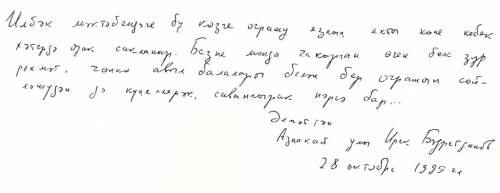 Илбәк мәктәбендәге бу көзге очрашу язның якты көне кебек
хәтердә озак сакланыр. Безне монда чакырган өчен бик зур
рәхмәт, чөнки авыл балалары белән бер очрашып сөй-
ләшүдән дә күңеллерәк, савыклырак нәрсә бар...
Әлмәттән
Азнакай улы Ирек
28 октябрь 1995 ел